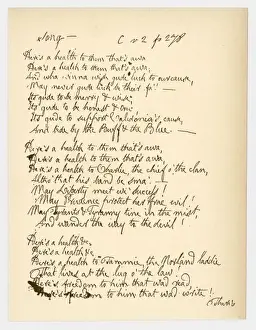 Song — C v 2 p 278
Here's a health to them that's awa,
Here's a health to them that's awa,
And wha winna wish gude luck to our cause,
May never gude luck be their fa'! —
Its gude to be merry & wise;
Its gude to be honest & true,
Its gude to support Caledonia's cause,
And bide by the Buff & the Blue. —
Here's a health to them that's awa,
Here's a health to them that's awa,
Here's a health to Charlie, the chief o' the clan,
Altho' that his band be sma'. —
May Liberty meet wi' success!
May Prudence protect her frae evil!
May Tyrants & Tyranny tine in the mist,
And wander the way to the devil!
Here's a health &c,
Here's a health &c
Here's a health to Tammie, the Norland laddie
That lives at the lug o' the law!
Here's freedom to him that wad read,
Here's freedom to him that wad write!